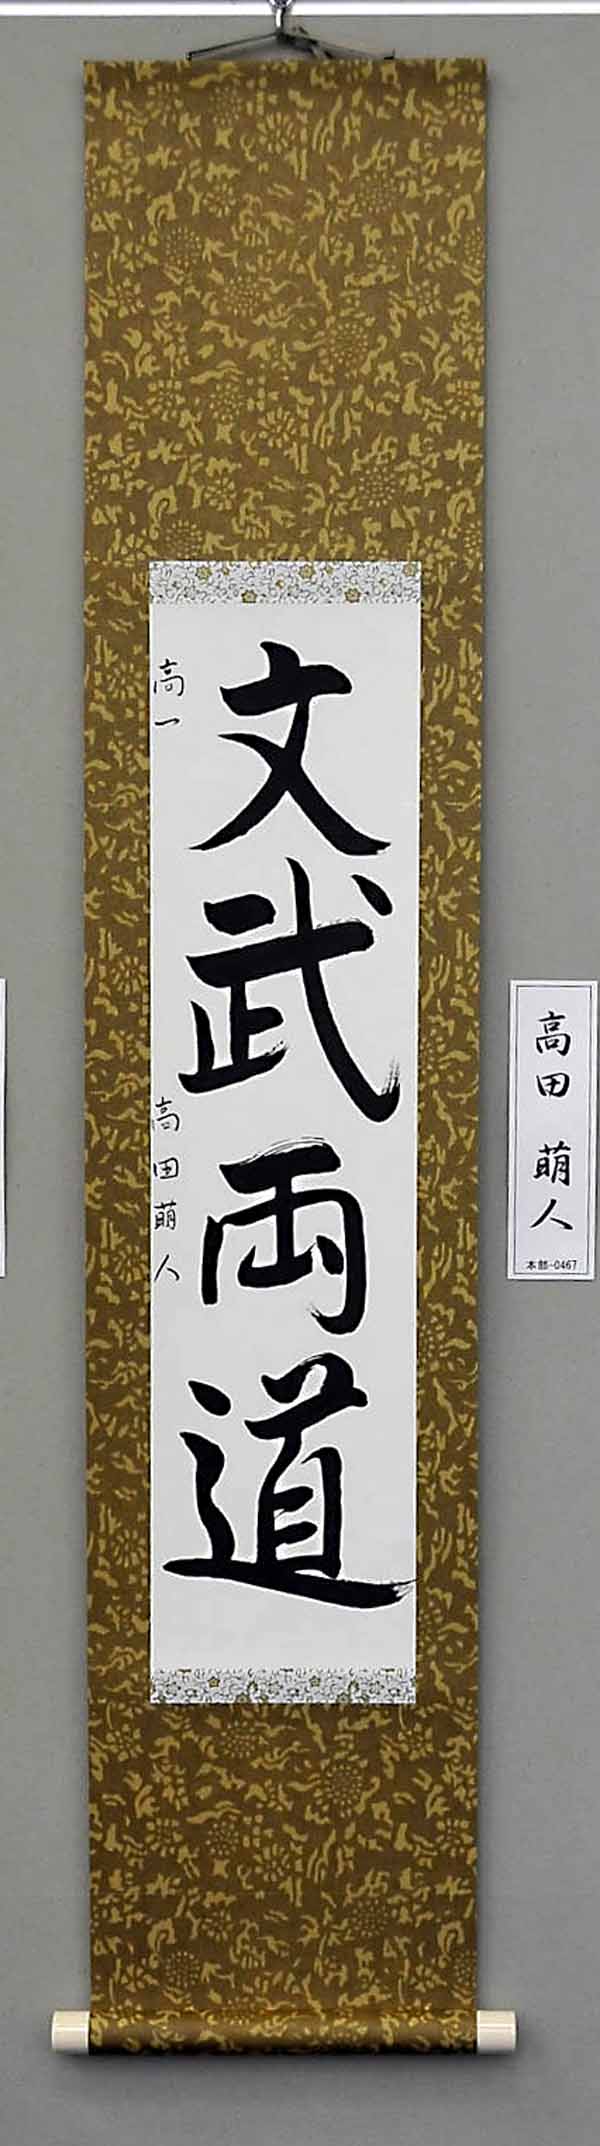 文武両道
高一 高田萌人
高田 萌人
本部-0467